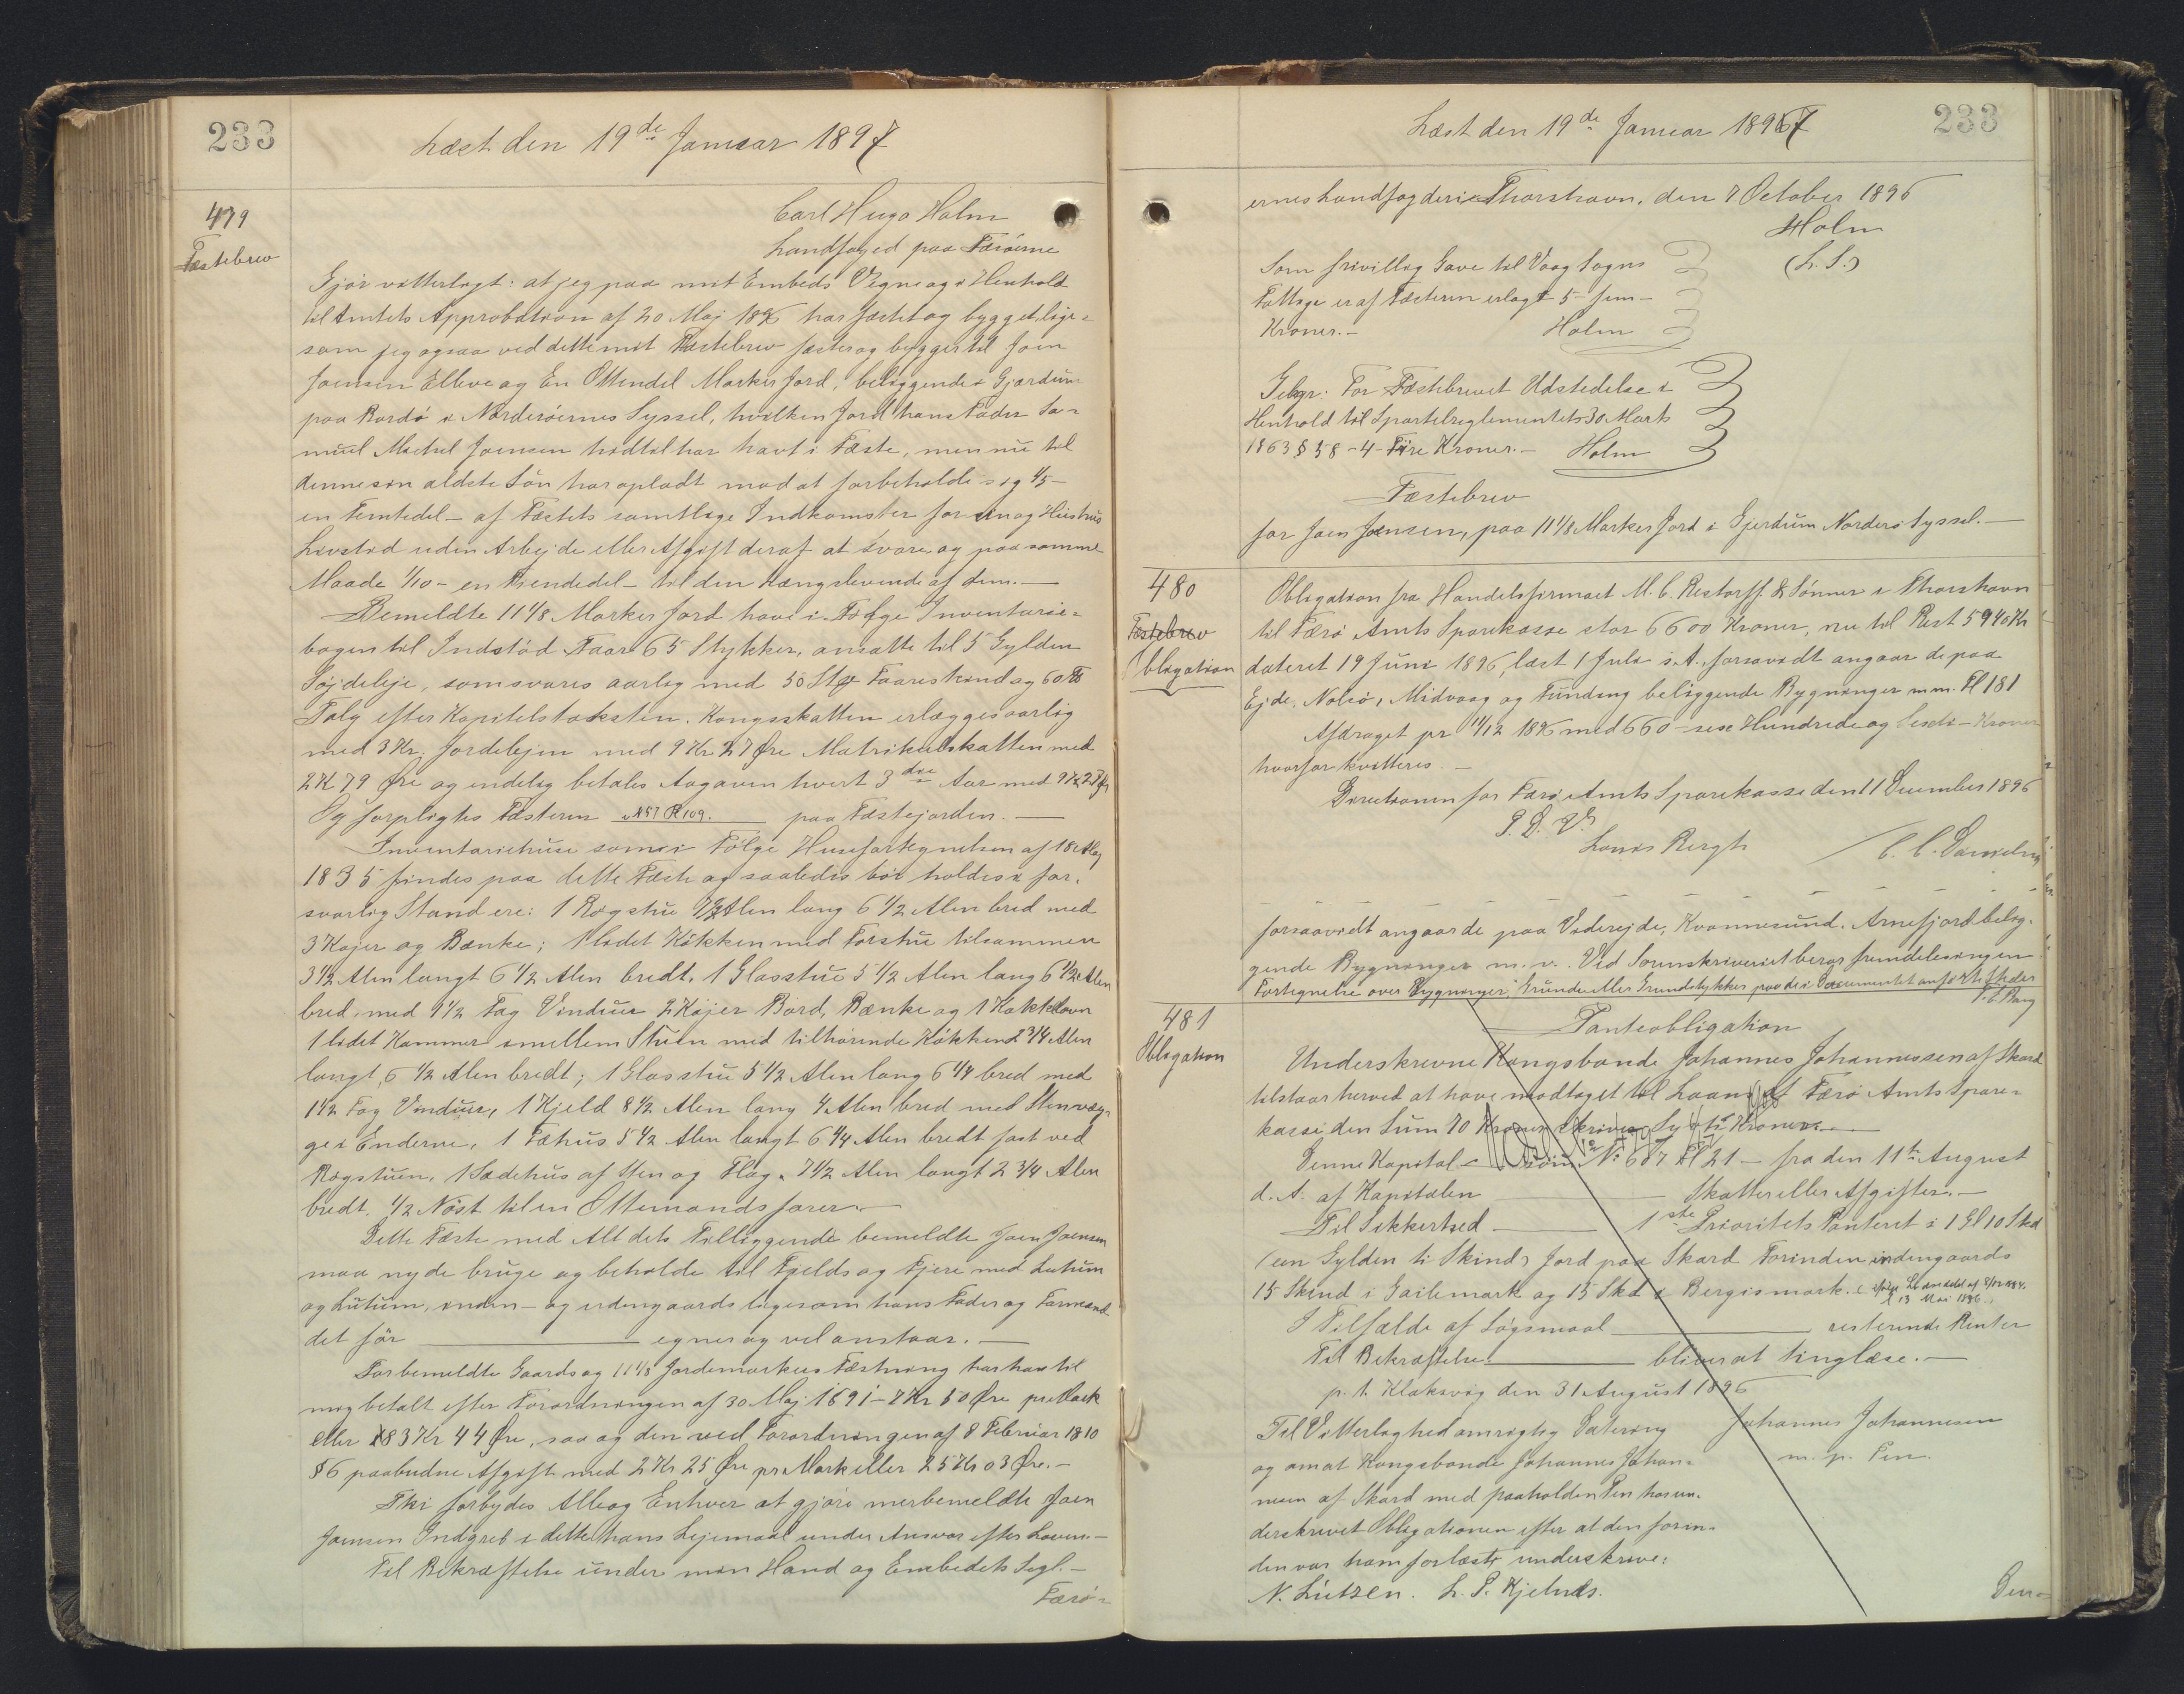 233
Læst den 19de Januar 1897
479
Fæstebrev
Carl Hugo Holm
Landfoged paa Færöerne
Gjör vitterlagt: at jeg paa mit Embeds Vegne og i Henhold
til Amtets Approbation af 20 Maj 1896 har fæstet og bygget, lige-
som jeg ogsaa ved dette mit Fæstebrev fæster og bygger til Joen
Joensen Elleve og En Ottendel Marker Jord, beliggende i Gjærdum
paa Bordö i Norderöernes Syssel, hvilken Jord hans Fader Sa-
muel Michel Joensen hidtil har havt i Fæste, men nu til
denne sin ældste Sön har opladt mod at forbeholde sig 1/5 -
en Femtedel - af Fæstets samtlige Indkomster for sin og Hustrus
Livstid uden Arbejde eller Afgift deraf at svare og paa samme
Maade 1/10 - en Tiendedel - til den Længstlevende af dem. -
Bemeldte 11 1/8 Marker Jord have i Fölge Inventarie-
bogen til Indstöd Faar 65 Stykker, ansatte til 5 Gylden
Söjdeleje, som svares aarlig med 50 Stk Faareskind og 60 ℔
Talg efter Kapitelstaksten. Kongsskatten erlægges aarlig
med 3 Kr. Jordelejen med 9 Kr 27 Öre Matrikulskatten med
2 K 79 Öre og endelig betales Aagaven hvert 3die Aar med 9 Kr 27 Ör
Og forpligtes Fæsteren N 57 R 109. paa Fæstejorden. -
Inventariehuse som i Fölge Husefortegnelsen af 18 Maj
1835 findes paa dette Fæste og saaledes bör holdes i for-
svarlig Stand ere: 1 Rögstue Alen lang 6 1/2 Alen bred med
3 Köjer og Bænke; 1 lidet Kökken med Forstue tilsammen
3 1/2 Alen langt 6 1/2 Alen bredt, 1 Glasstue 5 1/2 Alen lang 6 1/2 Alen
bred, med 1 1/2 Fag Vinduer 2 Köjer Bord, Bænke og 1 Kakkelovn
1 lidet Kammer imellem Stuen med tilhörende Kökken 2 3/4 Alen
langt, 6 1/2 Alen bredt; 1 Glasstue 5 1/2 Alen lang 6 1/4 bred med
1 1/2 Fag Vinduer, 1 Hjeld 8 1/2 Alen lang 4 Alen bred med Stenvæg-
ge i Enderne, 1 Fæhus 5 1/2 Alen langt 6 1/4 Alen bredt fast ved
Rögstuen, 1 Sædehus af Sten og Flag, 7 1/2 Alen langt 2 3/4 Alen
bredt. 1/2 Nöst til en Ottemandsfarer. -
Dette Fæste med Alt dets Tilliggende bemeldte Joen Joensen
maa nyde bruge og beholde til Fjelds og Fjere med Lutum
og Lutum, inden- og udengaards ligesom hans Fader og Formænd
det för egner og vel anstaar. -
For bemeldte Gaards og 11 1/8 Jordemarkers Fæstning har han til
mig betalt efter Forordningen af 30 Maj 1691 - 7 Kr 50 Öre pr. Mark
eller 83 Kr 44 Öre, saa og den ved Forordningen af 8 Februar 1810
§ 6 paabudne Afgift med 2 Kr 25 Öre pr Mark eller 25 Kr 03 Öre. -
Thi forbydes Alle og Enhver at gjöre merbemeldte Joen
Joensen Indgreb i dette hans Lejemaal under Ansvar efter Loven. -
Til Bekræftelse under min Haand og Embedets Segl. -
Færö-
Læst den 19de Januar 1897
233
ernes Landfogderi Thorshavn, den 7 October 1896
Holm
(L. S.)
Som frivillig Gave til Vaag Sogns
Fattige er af Fæsteren erlagt 5 - fem -
Kroner. -
Holm
Gebyr: For Fæstebrevet Udstedelse i
Henhold til Sportelreglementets 30 Marts
1863 § 58 - 4 - Fire Kroner. - Holm
Fæstebrev
for Joen Joensen, paa 11 1/8 Marker Jord i Gjerdum Norderö Syssel. -
480
Fæstebrev
Obligation
Obligation fra Handelsfirmaet M. C. Restorff & Sönner i Thorshavn
til Færö Amts Sparekasse stor 6600 Kroner, nu til Rest 5940 Kr
dateret 19 Juni 1896, læst 1 Juli s. A. forsavidt angaar de paa
Ejde, Nolsö, Midvaag og Funding beliggende Bygninger m.m. Fl 181
Afdraget pr 11/12 1896 med 660 - sex Hundrede og Sexti - Kroner
hvorfor kvitteres. -
Directionen for Færö Amts Sparekasse den 11 December 1896
P. D. V.
Louis Bergh / C. C. Danielsen
forsaavidt angaar de paa Viderejde, Kvannesund, Arnefjord belig-
gende Bygninger m. v. Ved Sorenskriveriet beror fremdelesingen
Fortegnelse over Bygninger, Grunde eller Grundstykker paa de i Documentet anförte Steder
481
Obligation
Panteobligation
Underskrevne Kongsbonde Johannes Johannessen af Skard
tilstaar herved at have modtaget til Laans af Færö Amts Spare-
kasse den Sum 70 Kroner skriver Sytti Kroner. -
Denne Kapital No 607 Fl 21 - fra den 11te August
d. A. af Kapitalen Skatter eller Afgifter. -
Til Sikkerhed 1ste Prioritets Panteret i 1 Gl 10 Skd
(een Gylden ti Skind) Jord paa Skard Forinden indengaards
15 Skind i Gailemark og 15 Skd i Bergismark.
I Tilfælde af Sögsmaal resterende Renter
Til Bekræftelse bliver at tinglæse. -
p. t. Klaksvig den 31 August 1896
Til Vitterlighed om rigtig Datering
Johannes Johannesen
og om at Kongsbonde Johannes Johan-
m. p. Pen.
nesen af Skard med paaholden Pen har un-
derskrevet Obligationen efter at den forin-
den var ham forlæst, underskrive:
N. Lützen. L. P. Kjelnæs.
Den-